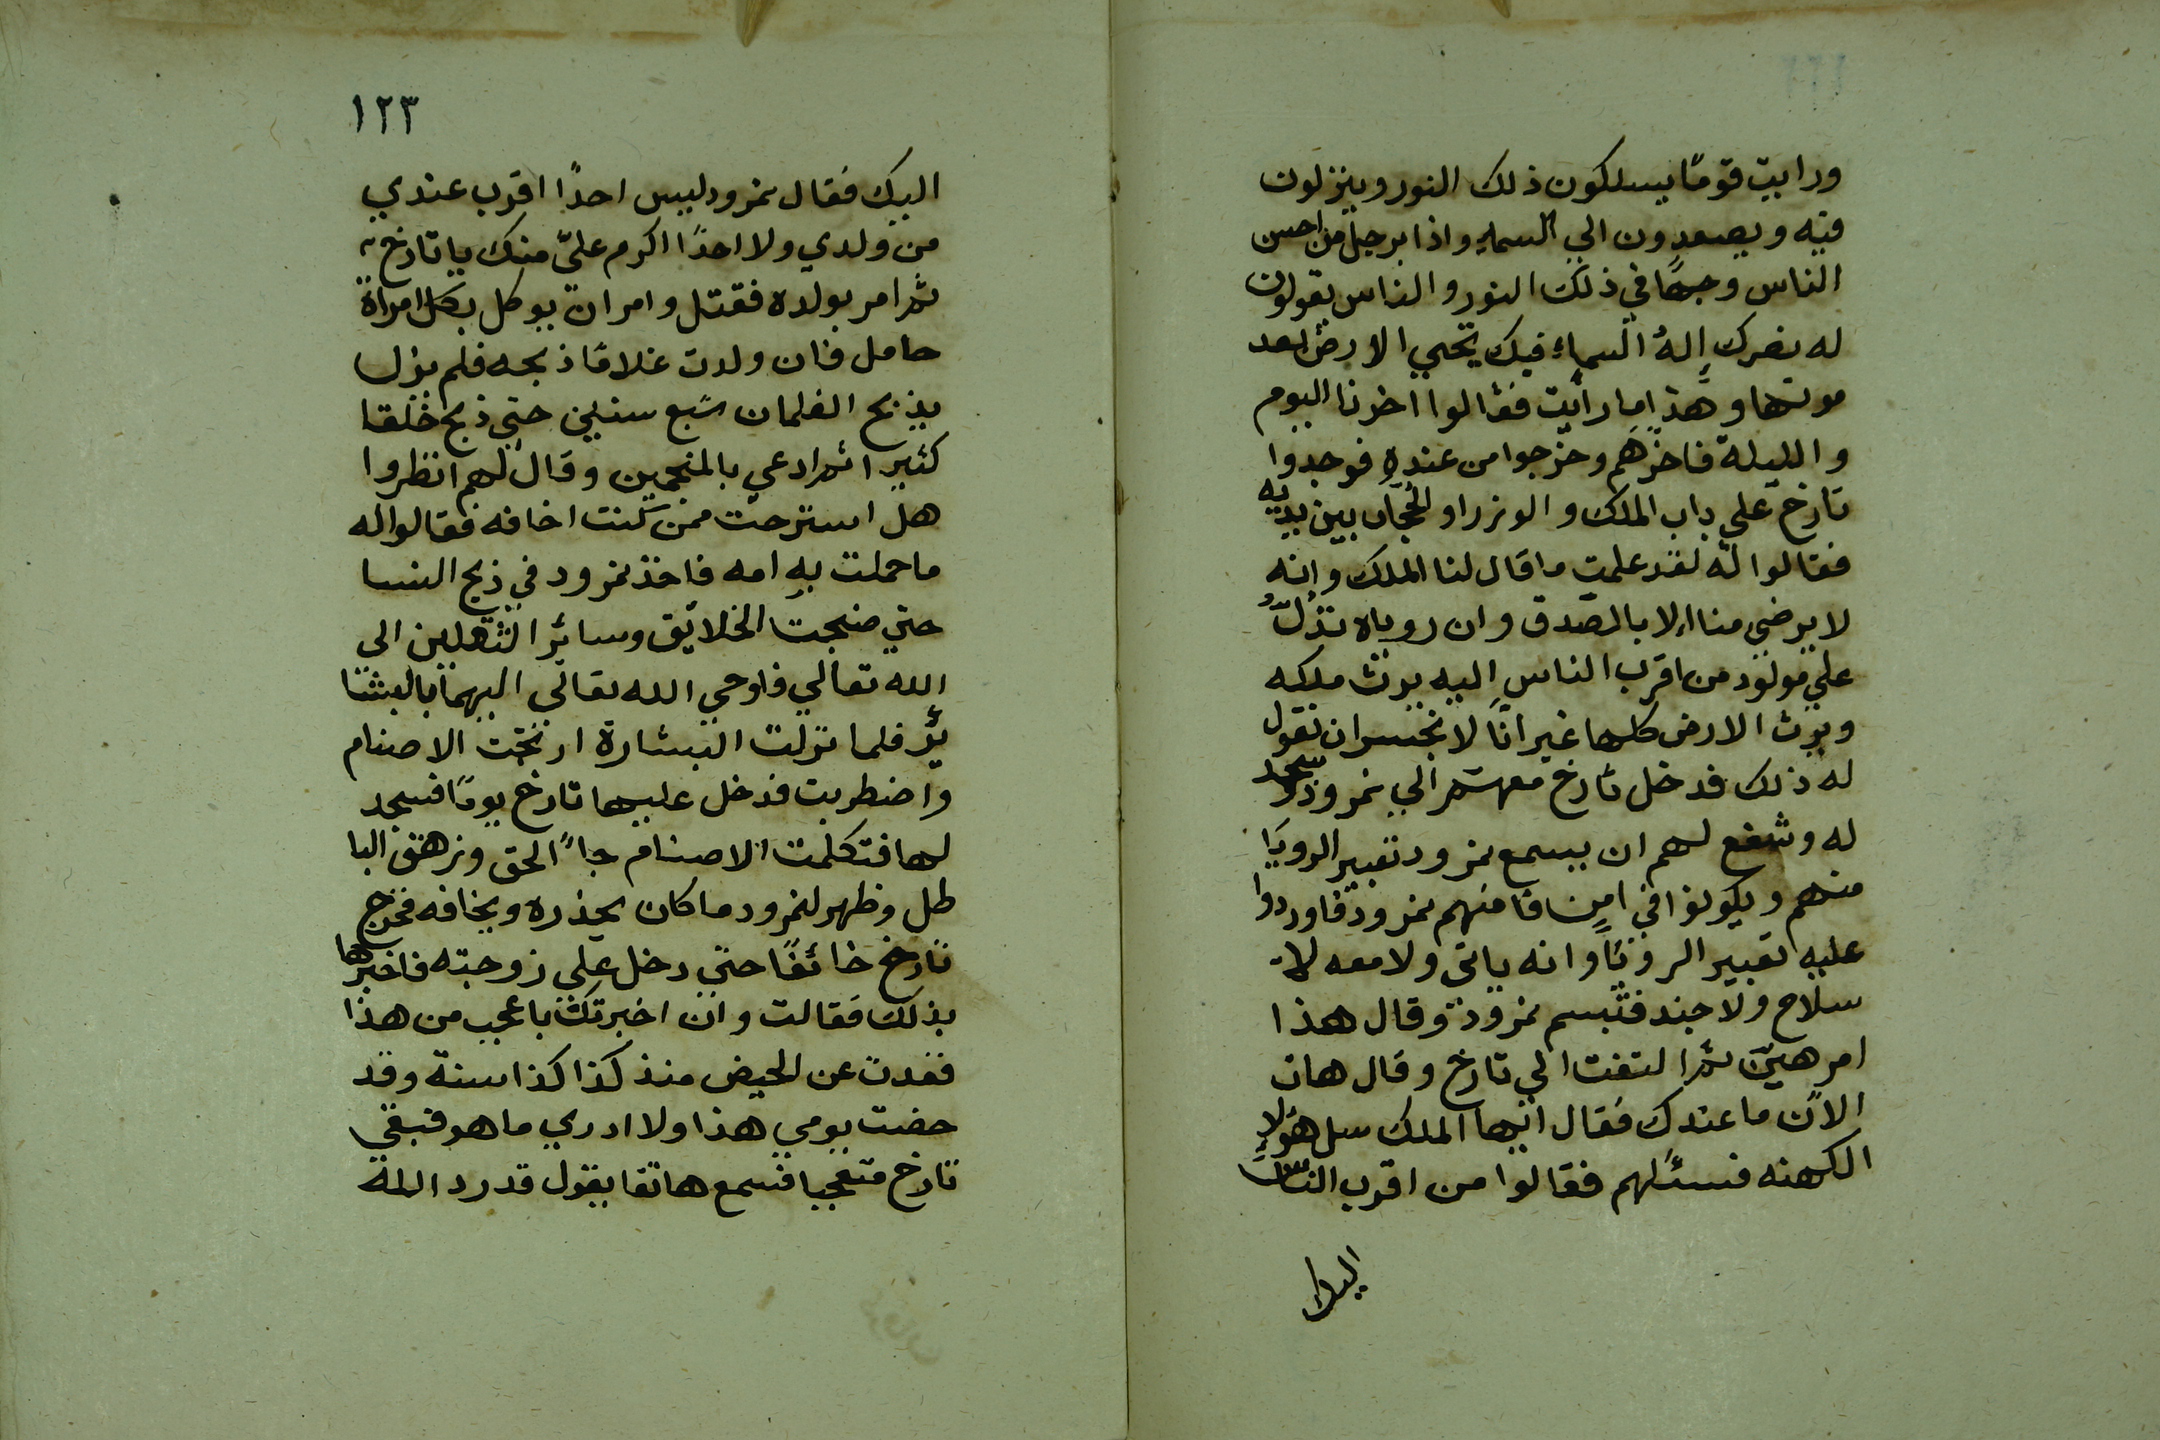 ورايت قومًا يسلكون ذلك النور وينزلون
فيه ويصعدون الي السماء واذا برجل من احسن
الناس وجهًا في ذلك النور والناس يقولون
له نصرك إله السماء فيك تحيي الارض بعد
موتها وهذا ما رايت فقالوا اخرنا اليوم
والليلة فاخرهم وخرجوا من عنده فوجدوا
تارخ علي باب الملك والوزرا والحجاب بين يديه
فقالوا له لقد علمت ما قال لنا الملك وانه
لا يرضي منا الا بالصدق وان روياه تدلّ
علي مولود من اقرب الناس اليه يرث ملكه
ويرث الارض كلها غير انّا لا نجسر ان نقول
له ذلك فدخل تارخ معهم الي نمرود وسجد
له وشفع لهم ان يسمع نمرود تعبير الرويا
منهم ويكونوا في امن فامنهم نمرود فاوردوا
عليه تعبير الرويا وانه ياتى ولا معه لا
سلاح ولا جند فتبسم نمرود وقال هذا
امر هيّن ثم التفت الي تارخ وقال هات
الان ما عندك فقال ايها الملك سل هولاء
الكهنه فسئلهم فقالوا من اقرب الناس
اليك
١٢٣
اليك فقال نمرود ليس احدًا اقرب عندي
من ولدي ولا احدًا اكرم عليّ منك يا تارخ
ثم امر بولده فقتل وامر ان يوكل بكل امراة
حامل فان ولدت غلامًا ذبحه فلم يزل
يذبح الغلمان سبع سنين حتي ذبح خلقا
كثيرا ثم ادعي بالمنجمين وقال لهم انظروا
هل استرحت ممن كنت اخافه فقالوا له
ما حملت به امه فاخذ نمرود في ذبح النسا
حتي ضجت الخلايق وسائر الثقلين الى
الله تعالي فاوحي الله تعالى اليهما بالبشا
ئر فلما نزلت البشارة ارتجت الاصنام
واضطربت فدخل عليها تارخ يومًا فسجد
لها فتكلمت الاصنام جاء الحق وزهق البا
طل وظهر لنمرود ما كان يحذره ويخافه فخرج
تارخ خائفًا حتي دخل علي زوجته فاخبرها
بذلك فقالت وان اخبرتك باعجب من هذا
فقدت عن الحيض منذ كذا كذا سنة وقد
حضت يومي هذا ولا ادري ما هو فبقي
تارخ متعجبا فسمع هاتفا يقول قد رد الله